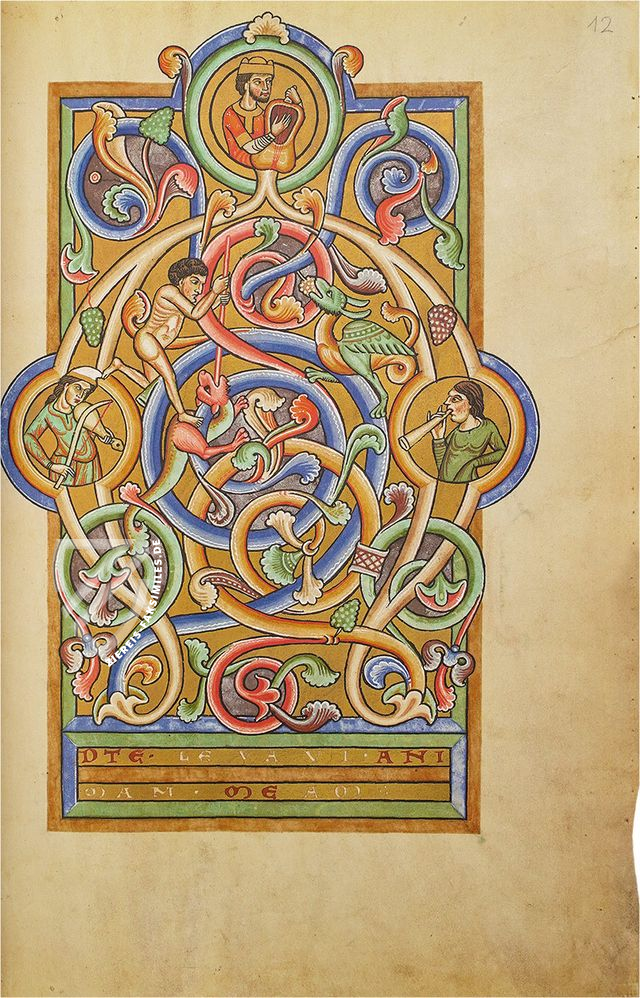 12
DTE · LEVAVI · ANI
MAM · MEAM
ZIEREIS-FAKSIMILES.DE